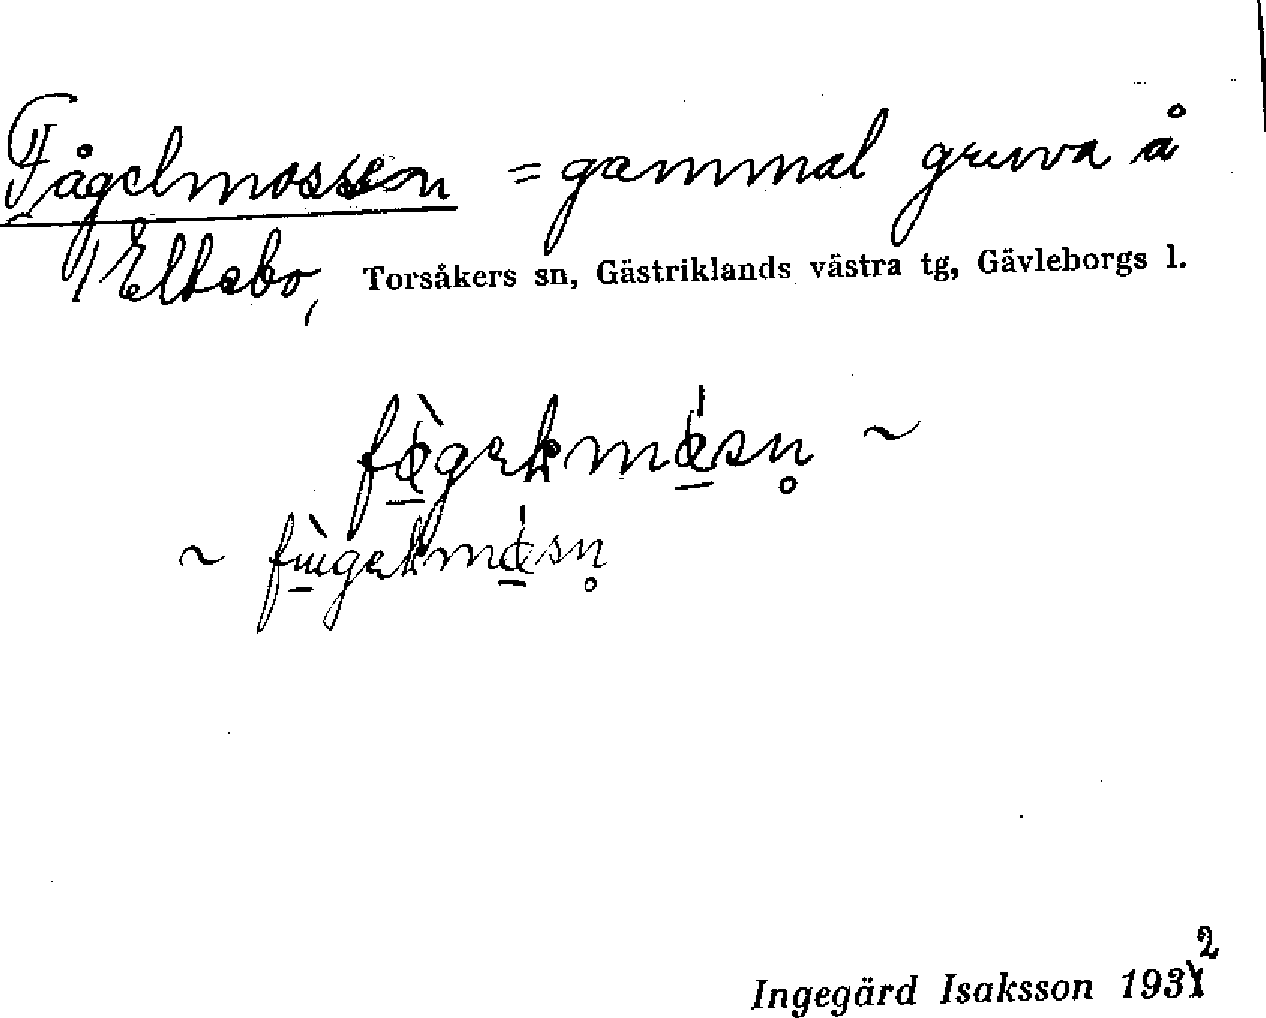 Fågelmossen = gammal gruva å
Eltebo, Torsåkers sn, Gästriklands västra tg, Gävleborgs l.
~
~
Ingegärd Isaksson 1932